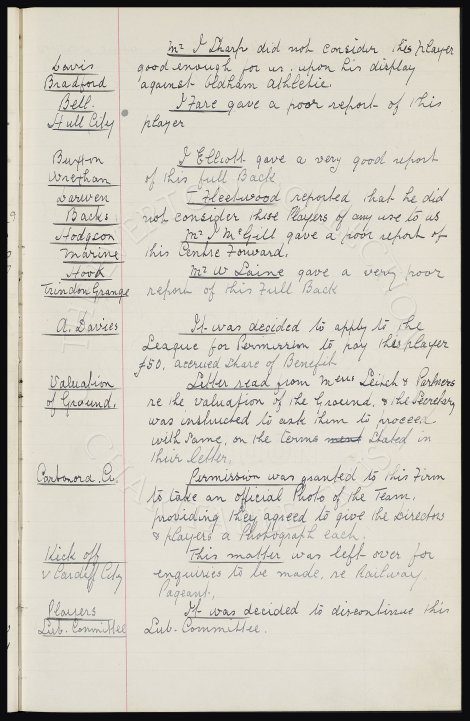 Mr J Sharp did not consider this player
Davis good enough for us. upon his display
Bradford against Oldham Athletic.
Bell. J Fare gave a poor report of this
Hull City player
Burton J Elliott gave a very good report
Wrexham of this full Back
Darwen Fleetwood reported that he did
Backs not consider these Players of any use to us
Hodgson Mr J McGill gave a poor report of
Marine this Centre Foward.
Hook Mr W Laine gave a very poor
Trindon Grange report of this Full Back
A. Davies It was decided to apply to the
League for Permission to pay this player
£50. accrued Share of Benefit
Valuation Letter read from Mess Leinch & Partners
of Ground. re the valuation of the Ground, & the Secretary
was instructed to ask them to proceed
with same, on the terms stated in
their letter.
Carbonora. Co. Permission was granted to this Firm
to take an official Photo of the Team,
providing they agreed to give the Directors
& players a Photograph each.
Kick off This matter was left over for
v Cardiff City enquiries to be made, re Railway
Pageant.
Players It was decided to discontinue this
Sub. Committee Sub. Committee.